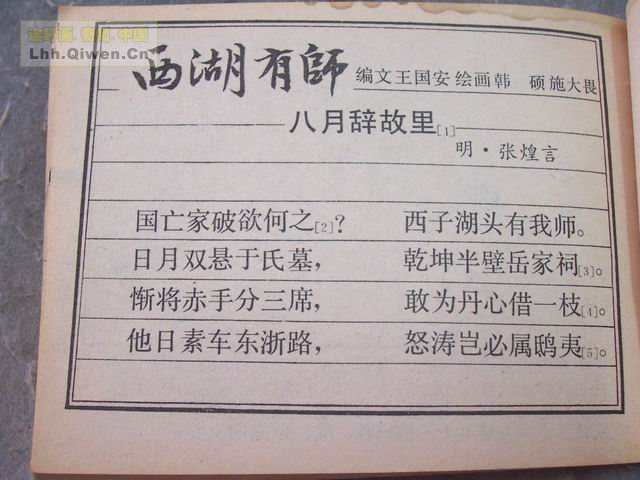 连环画.奇闻.中国
Lhh.Qiwen.Cn
西湖有師 编文王国安绘画韩 硕施大畏
八月辞故里[1]
明·张煌言
国亡家破欲何之[2]? 西子湖头有我师。
日月双悬于氏墓, 乾坤半壁岳家祠[3]。
惭将赤手分三席, 敢为丹心借一枝[4]。
他日素车东浙路, 怒涛岂必属鸱夷[5]。